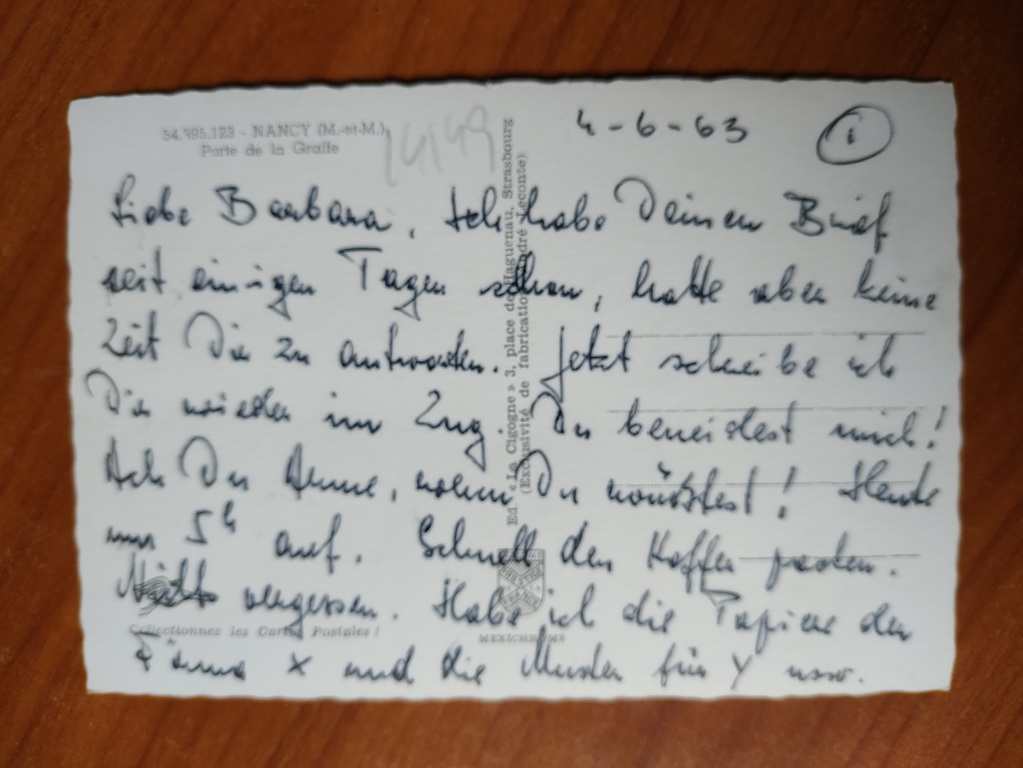 54.395.128 - NANCY (M.-et-M.)
Porte de la Graffe
14149
4-6-63
1
Liebe Barbara, Ich habe Deinen Brief
seit einigen Tagen schon, hatte aber keine
Zeit Dir zu antworten. Jetzt schreibe ich
Dir wieder im Zug. Du beneidest mich!
Ach Du Arme, wenn Du wüsstest! Heute
um 5h auf. Schnell den Koffer packen.
Nichts vergessen. Habe ich die Papiere der
Firma X und die Muster für Y usw.
Ed. « La Cigogne » 3, place de Haguenau, Strasbourg
(Exclusivité de fabrication André Leconte)
Collectionnez les Cartes Postales !
MEXICHROME